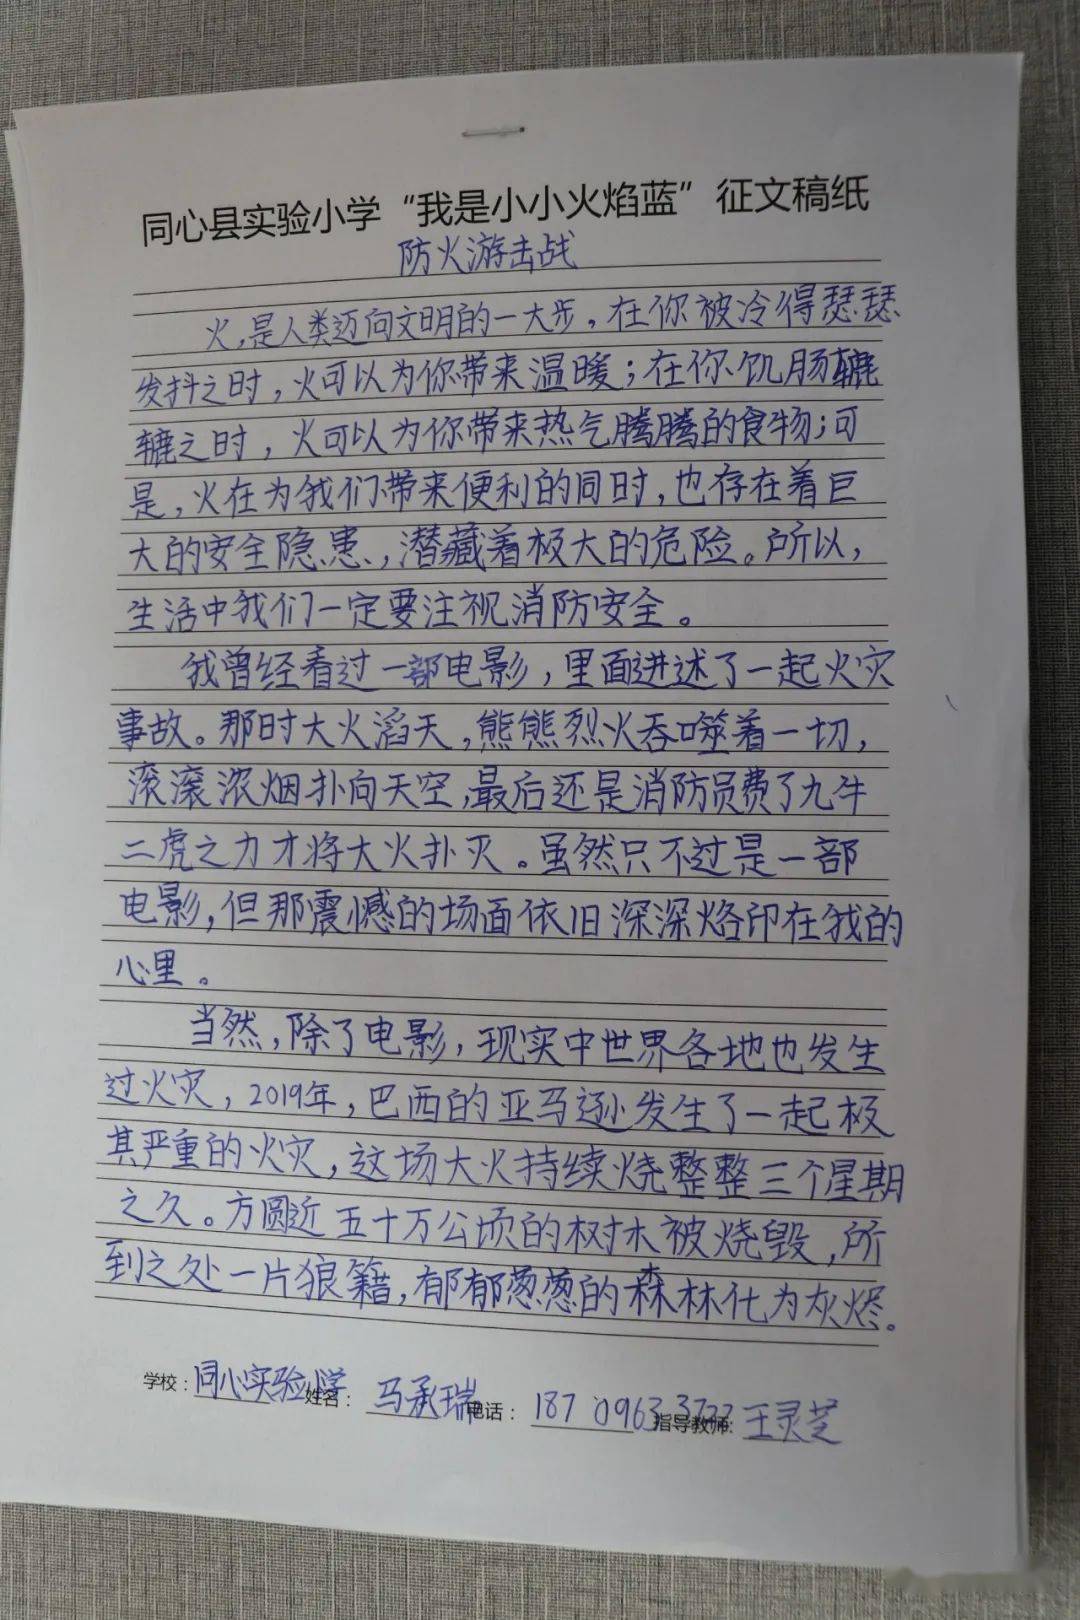 同心县实验小学“我是小小火焰蓝”征文稿纸
防火游击战
火,是人类迈向文明的一大步，在你被冷得瑟瑟
发抖之时，火可以为你带来温暖；在你饥肠辘
辘之时，火可以为你带来热气腾腾的食物；可
是，火在为我们带来便利的同时，也存在着巨
大的安全隐患，潜藏着极大的危险。所以，
生活中我们一定要注视消防安全。
我曾经看过一部电影，里面讲述了一起火灾
事故。那时大火滔天，熊熊烈火吞噬着一切，
滚滚浓烟扑向天空，最后还是消防员费了九牛
二虎之力才将大火扑灭。虽然只不过是一部
电影，但那震憾的场面依旧深深烙印在我的
心里。
当然，除了电影，现实中世界各地也发生
过火灾，2019年，巴西的亚马逊发生了一起极
其严重的火灾，这场大火持续烧整整三个星期
之久。方圆近五十万公顷的树木被烧毁，所
到之处一片狼籍，郁郁葱葱的森林化为灰烬。
学校：同心实验小学 姓名：马承瑞 电话：187 0963 指导教师：王灵芝